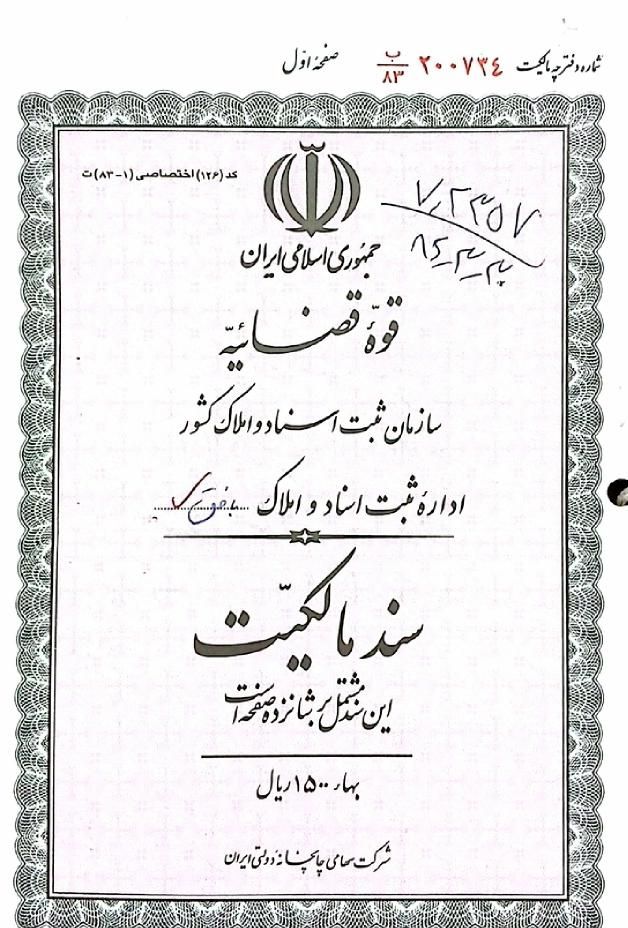 شماره دفترچه مالکیت ۲۰۰۷۳۴ ب/۸۳ صفحه اوّل
کد (۱۲۶) اختصاصی (۱-۸۳) ت
جمهوری اسلامی ایران
قوّهٔ قضائیّه
سازمان ثبت اسناد و املاک کشور
ادارهٔ ثبت اسناد و املاک بافق
سند مالکیّت
این سند مشتمل بر شانزده صفحه است
بهاء ۱۵۰۰ ریال
شرکت سهامی چاپخانه دولتی ایران